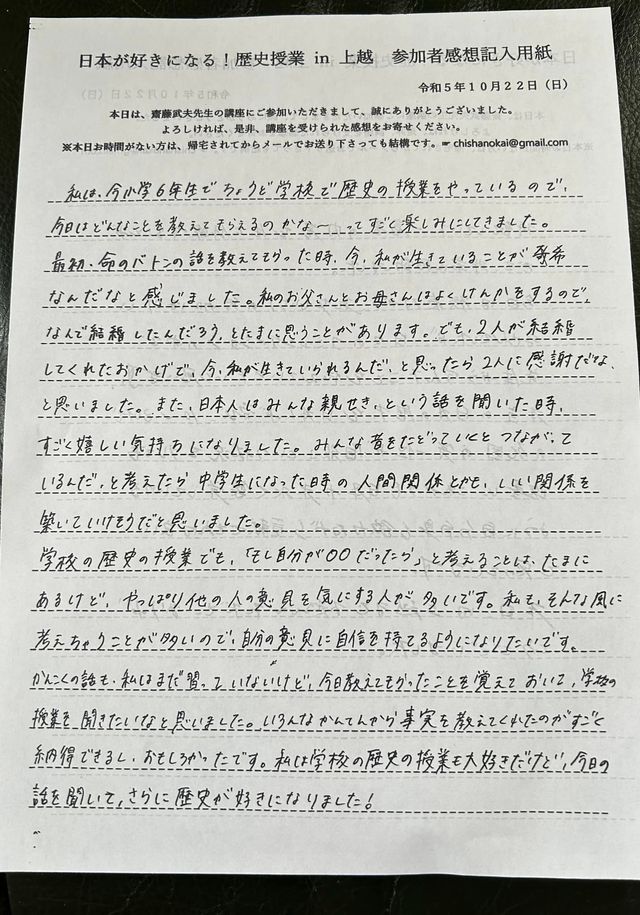 日本が好きになる！歴史授業 in 上越　参加者感想記入用紙
令和５年１０月２２日（日）
本日は、齋藤武夫先生の講座にご参加いただきまして、誠にありがとうございました。
よろしければ、是非、講座を受けられた感想をお寄せください。
※本日お時間がない方は、帰宅されてからメールでお送り下さっても結構です。☛ chishanokai@gmail.com
私は、今小学6年生でちょうど学校で歴史の授業をやっているので、
今日はどんなことを教えてもらえるのかなーってすごく楽しみにしてきました。
最初、命のバトンの話を教えてもらった時、今、私が生きていることが奇
なんだなと感じました。私のお父さんとお母さんはよくけんかをするので、
なんで結婚したんだろう、とたまに思うことがあります。でも、2人が結婚
してくれたおかげで、今、私が生きていられるんだ、と思ったら2人に感謝だな、
と思いました。また、日本人はみんな親せき、という話を聞いた時、
すごく嬉しい気持ちになりました。みんな昔をたどっていくとつながって
いるんだ、と考えたら中学生になった時の人間関係とかも、いい関係を
築いていけそうだと思いました。
学校の歴史の授業でも、「もし自分が〇〇だったら」と考えることは、たまに
あるけど、やっぱり他の人の意見を気にする人が多いです。私も、そんな風に
考えちゃうことが多いので、自分の意見に自信を持てるようになりたいです。
かんこくの話も、私はまだ習っていないけど、今日教えてもらったことを覚えておいて、学校の
授業を聞きたいなと思いました。いろんなかんてんから事実を教えてくれたのがすごく
納得できるし、おもしろかったです。私は学校の歴史の授業も大好きだけど、今日の
話を聞いて、さらに歴史が好きになりました！